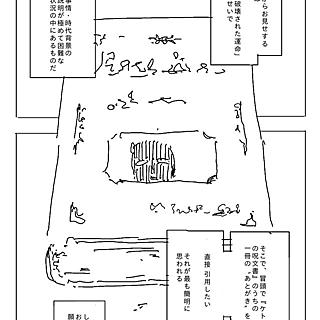 らお見せする
破壊された運命」
せいで
事情・時代背景の
説明が極めて困難な
状況の中にあるものだ
そこで、冒頭で『ケト
の呪文書』のうちの
一冊の〝あとがき〟を
直接 引用したい
それが最も簡明に
思われる
し
お
願